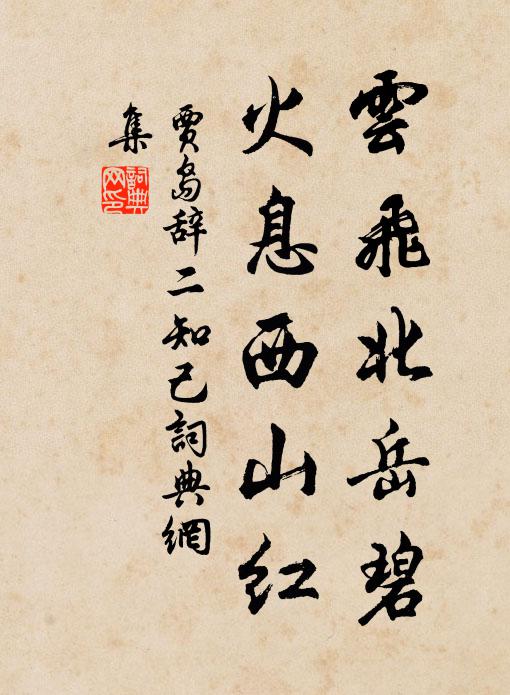 雲飛北岳碧
火息西山红
賈島辞二知己詞典網
集
詞典
网印